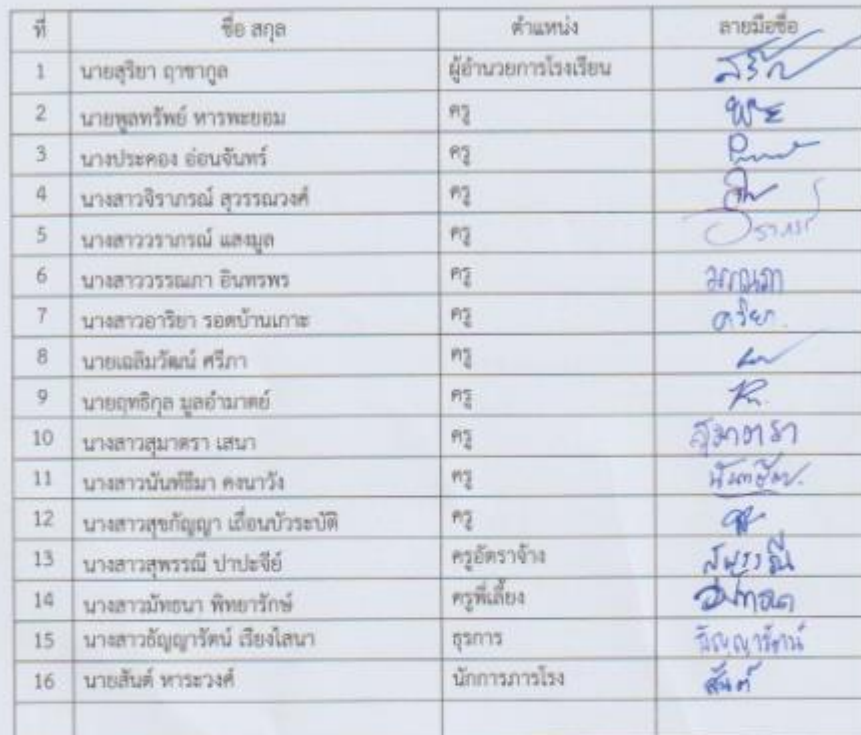 ที่ ชื่อ สกุล ตำแหน่ง ลายมือชื่อ
1 นายสุริยา ฤาชากูล ผู้อำนวยการโรงเรียน
2 นายพูลทรัพย์ หารพะยอม ครู
3 นางประคอง อ่อนจันทร์ ครู
4 นางสาวจิราภรณ์ สุวรรณวงศ์ ครู
5 นางสาววราภรณ์ แสงมูล ครู วราภรณ์
6 นางสาววรรณภา อินทรพร ครู วรรณภา
7 นางสาวอาริยา รอดบ้านเกาะ ครู อาริยา
8 นายเฉลิมวัฒน์ ศรีภา ครู
9 นายฤทธิกุล มูลอำมาตย์ ครู
10 นางสาวสุมาตรา เสนา ครู สุมาตรา
11 นางสาวนันท์ธีมา คงนาวัง ครู
12 นางสาวสุขกัญญา เถื่อนบัวระบัติ ครู
13 นางสาวสุพรรณี ปาปะจีย์ ครูอัตราจ้าง สุพรรณี
14 นางสาวมัทธนา พิทยารักษ์ ครูพี่เลี้ยง
15 นางสาวธัญญารัตน์ เรียงไสนา ธุรการ ธัญญารัตน์
16 นายสันต์ หาระวงศ์ นักการภารโรง สันต์